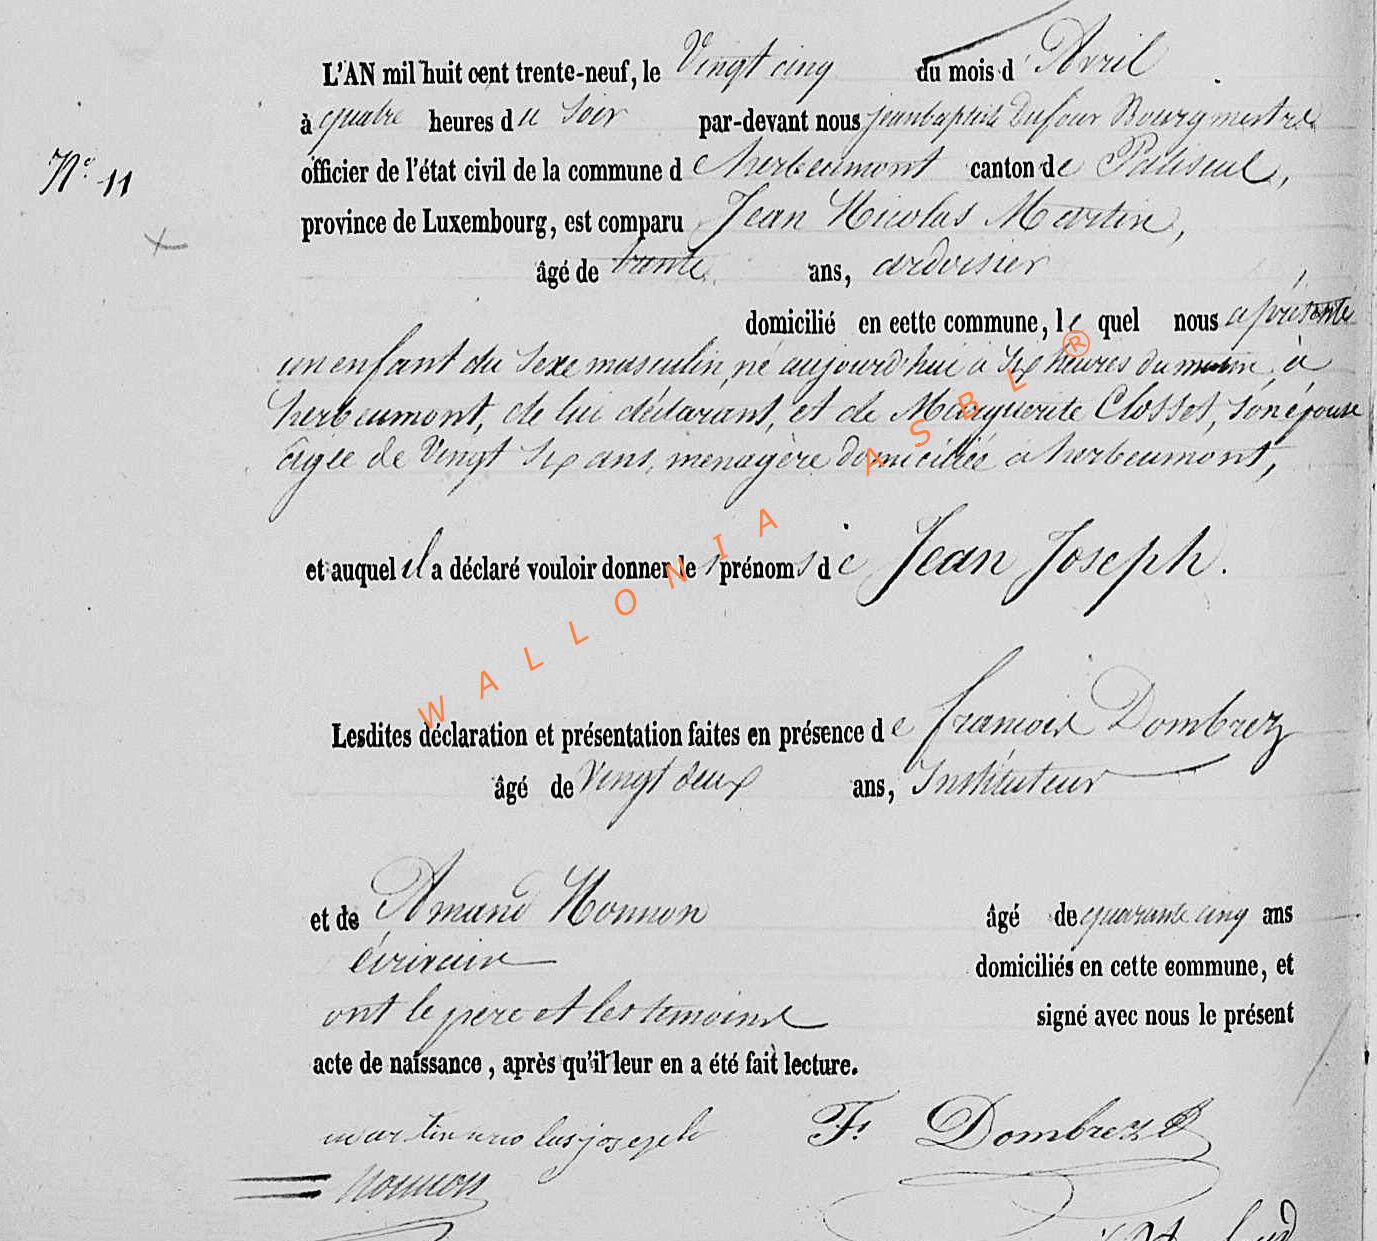 L'AN mil huit cent trente-neuf, le Vingt cinq du mois d'Avril
à quatre heures du Soir par-devant nous jean baptiste Dufour Bourgmestre
N° 11
officier de l'état civil de la commune d'herbeumont canton de Paliseul,
province de Luxembourg, est comparu Jean Nicolas Martin,
âgé de trente ans, ardoisier
domicilié en cette commune, le quel nous a présenté
un enfant du sexe masculin, né aujourd'hui à six heures du matin, à
herbeumont, de lui déclarant, et de Marguerite Closset, son épouse
âgée de Vingt six ans, menagère domiciliée à herbeumont,
et auquel il a déclaré vouloir donner les prénoms de Jean Joseph.
Lesdites déclaration et présentation faites en présence de françois Dombrez
âgé de Vingt deux ans, Instituteur
et de Amand Nonnon âgé de quarante cinq ans
écrivain domiciliés en cette commune, et
ont le père et les témoins signé avec nous le présent
acte de naissance, après qu'il leur en a été fait lecture.
martin nicolas joseph Fs Dombrez
Nonnon
WALLONIA ASBL ®